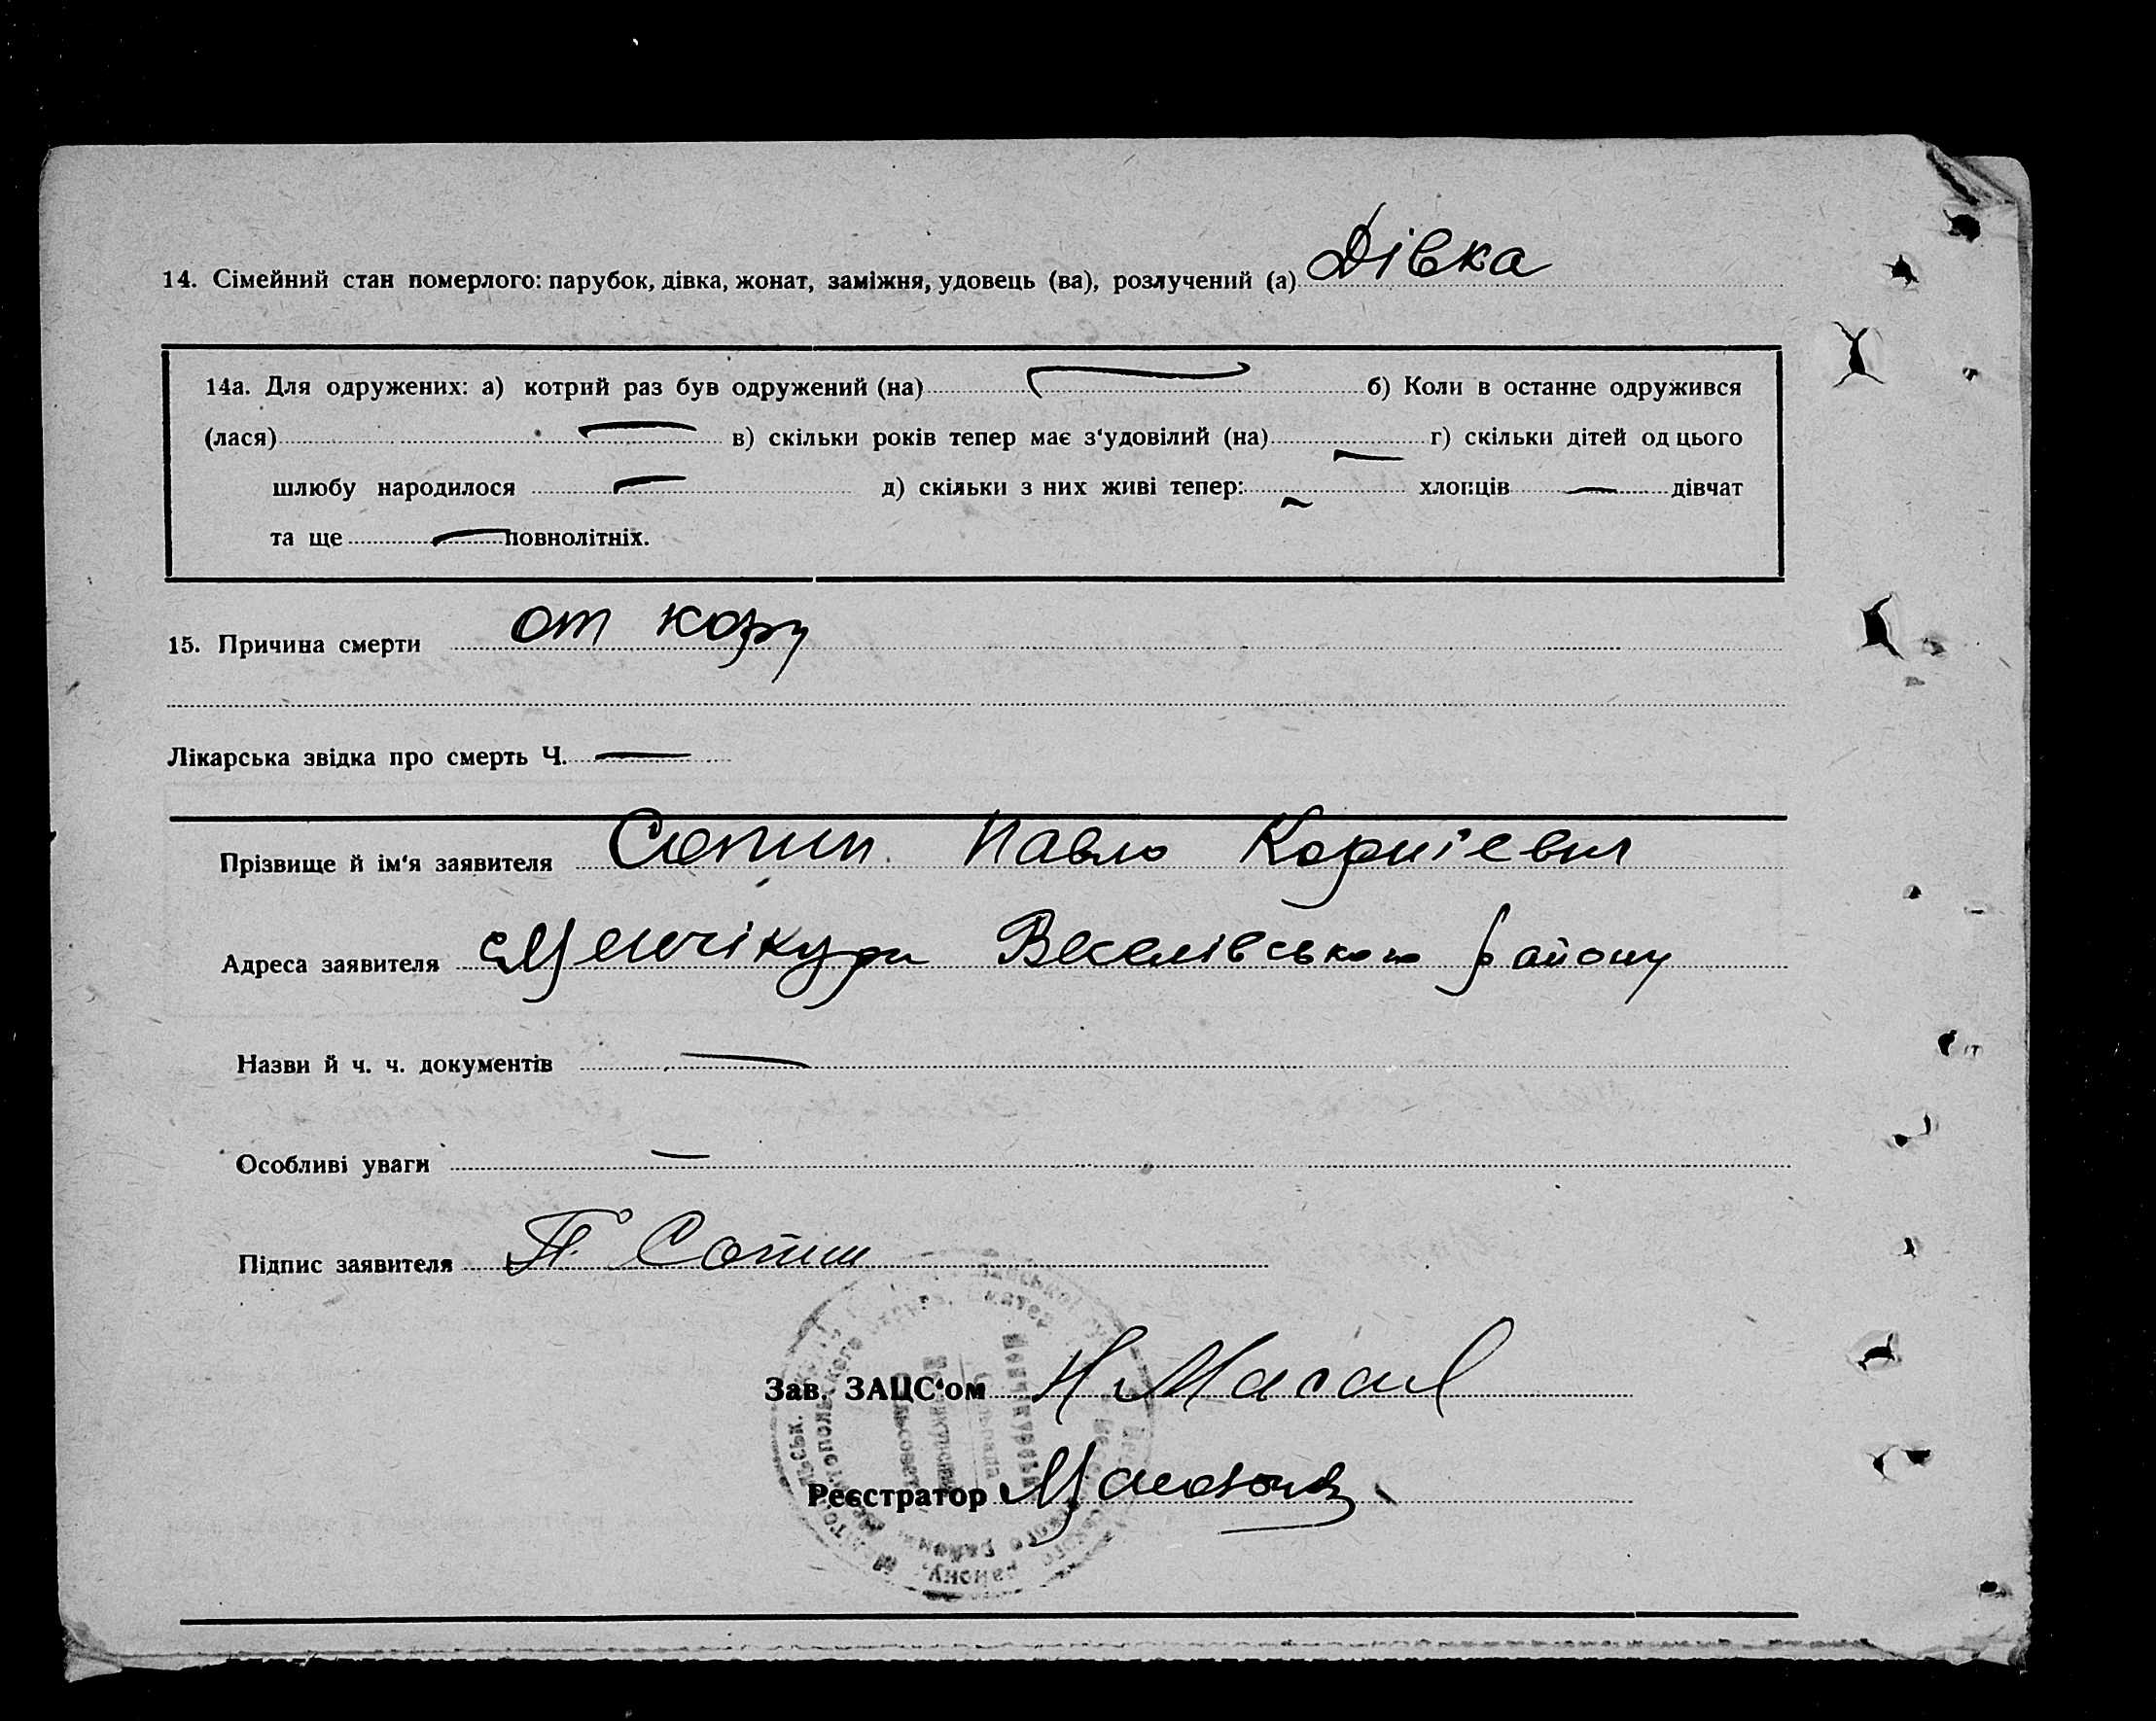 14. Сімейний стан померлого: парубок, дівка, жонат, заміжня, удовець (ва), розлучений (а) Дівка
14а. Для одружених: а) котрий раз був одружений (на) — б) Коли в останне одружився
(лася) — в) скільки років тепер має з‘удовілий (на) — г) скільки дітей од цього
шлюбу народилося — д) скільки з них живі тепер: — хлопців — дівчат
та ще — повнолітніх.
15. Причина смерти от кору
Лікарська звідка про смерть Ч. —
Прізвище й ім‘я заявителя Павло Корнієвич
Адреса заявителя с Менчікури Веселівського району
Назви й ч. ч. документів —
Особливі уваги —
Підпис заявителя П.
Зав. ЗАЦС‘ом
Реєстратор